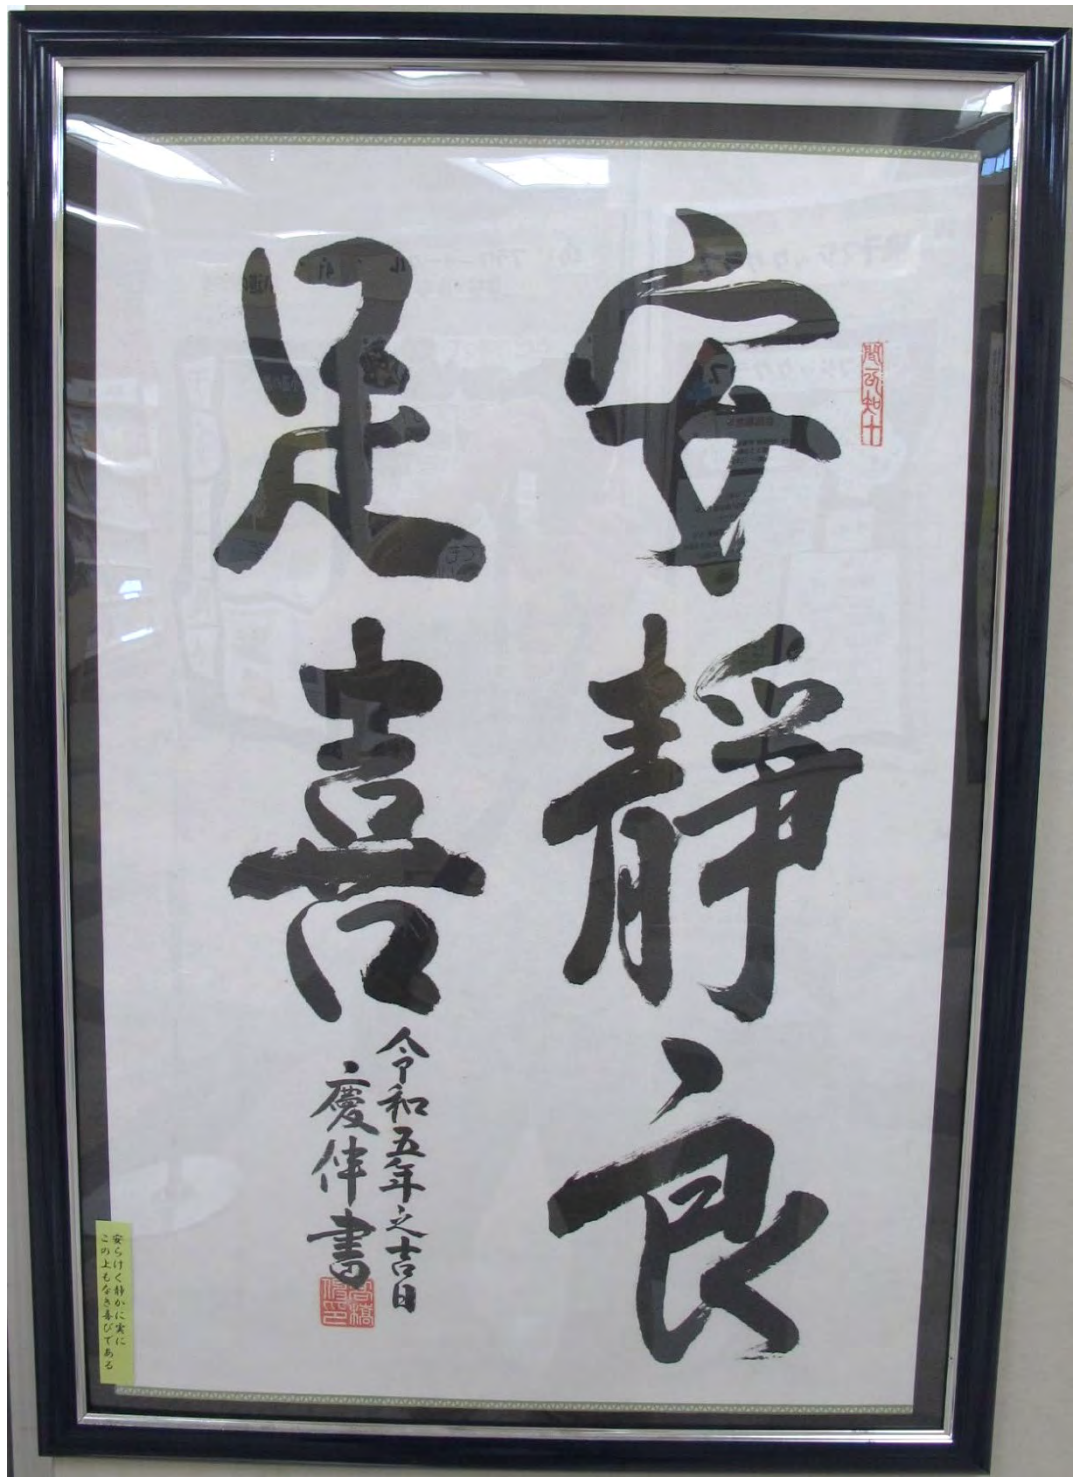 安靜良
足喜
令和五年之吉日
慶伴書
安らけく静かに実に
この上もなき喜びである